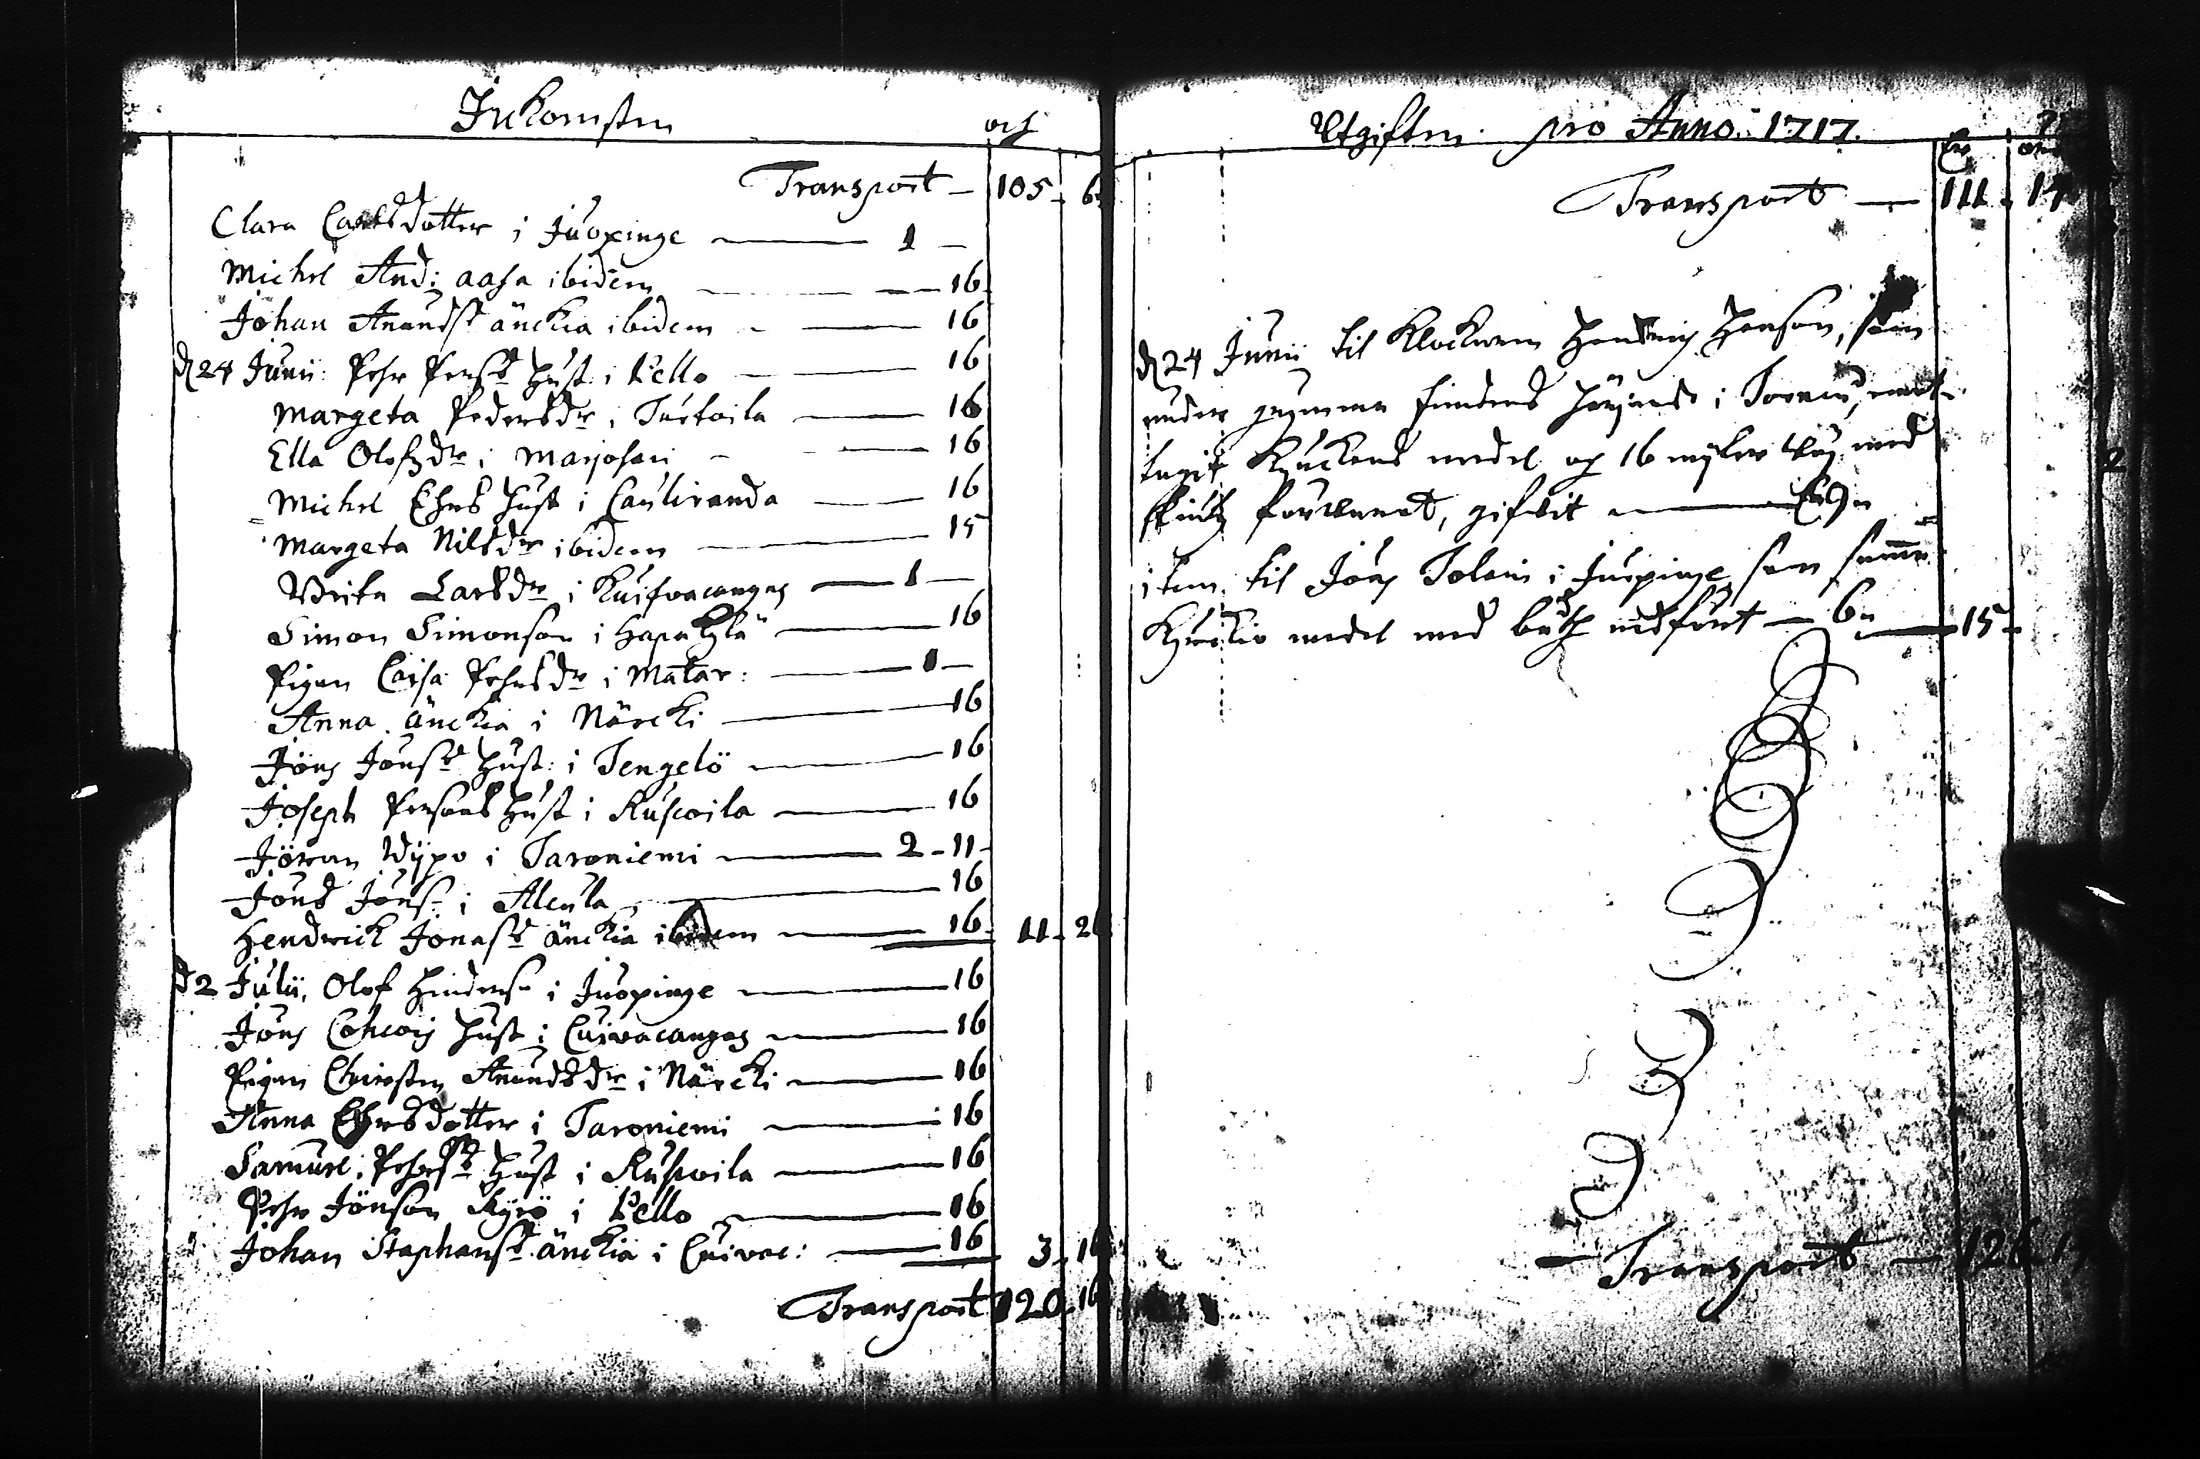 Inkomsten och
Transport — 105 - 6
Clara Carlsdotter i Juoxinge — 1 —
Michel And: aasa ibidem — 16
Johan Anundss änckia ibidem — 16
d 24 Junii: Pehr Perss hust: i Pello — 16
Margeta Pedersdr i Turtoila — 16
Ella Olofzdr i Marjosari — 16
Michel Ehrs hust i Cauliranda — 16
Margeta Nilsdr ibidem — 15
Brita Larsdr i Kuifvacangas — 1 —
Simon Simonson i — 16
Pigan Caisa Pehrsdr i Matar: — 1 —
Anna änckia i Närcki — 16
Jöns Jönss hust: i Tengelö — 16
Joseph Persons hust i Ruskoila — 16
Jöran Wijpo i Taroniemi — 2 - 11
Jöns Jönss: i Alcula — 16
Hendrick Jonass änckia ibidem — 16 11 - 2
d 2 Julii, Olof Hinderss i Juoxinge — 16
Jöns hust i Cuivacangas — 16
Pigan Christen Anundsdr i Närcki — 16
Anna Ehrsdotter i Taroniemi — 16
Samuel Pehrss hust i Ruskoila — 16
Pehr Jönson Kyrö i Pello — 16
Johan Staphanss änckia i Cuivac: — 16 3 - 16
Transport 120 - 16
Utgiften pro Anno 1717.
Transport — 111 - 17
d 24 Junii til Klockaren Hendrich Hanson, som
under grymma fiendens i Torneå,
tagit Kyrckens medel och 16 myler wäg med
skiutz forwarat, gifvit — 9
item til Jöns Tolain i Juoxinge som samma
Kyrckio medel med båth nedfört — 6 — 15 -
— Transport — 126 - 17